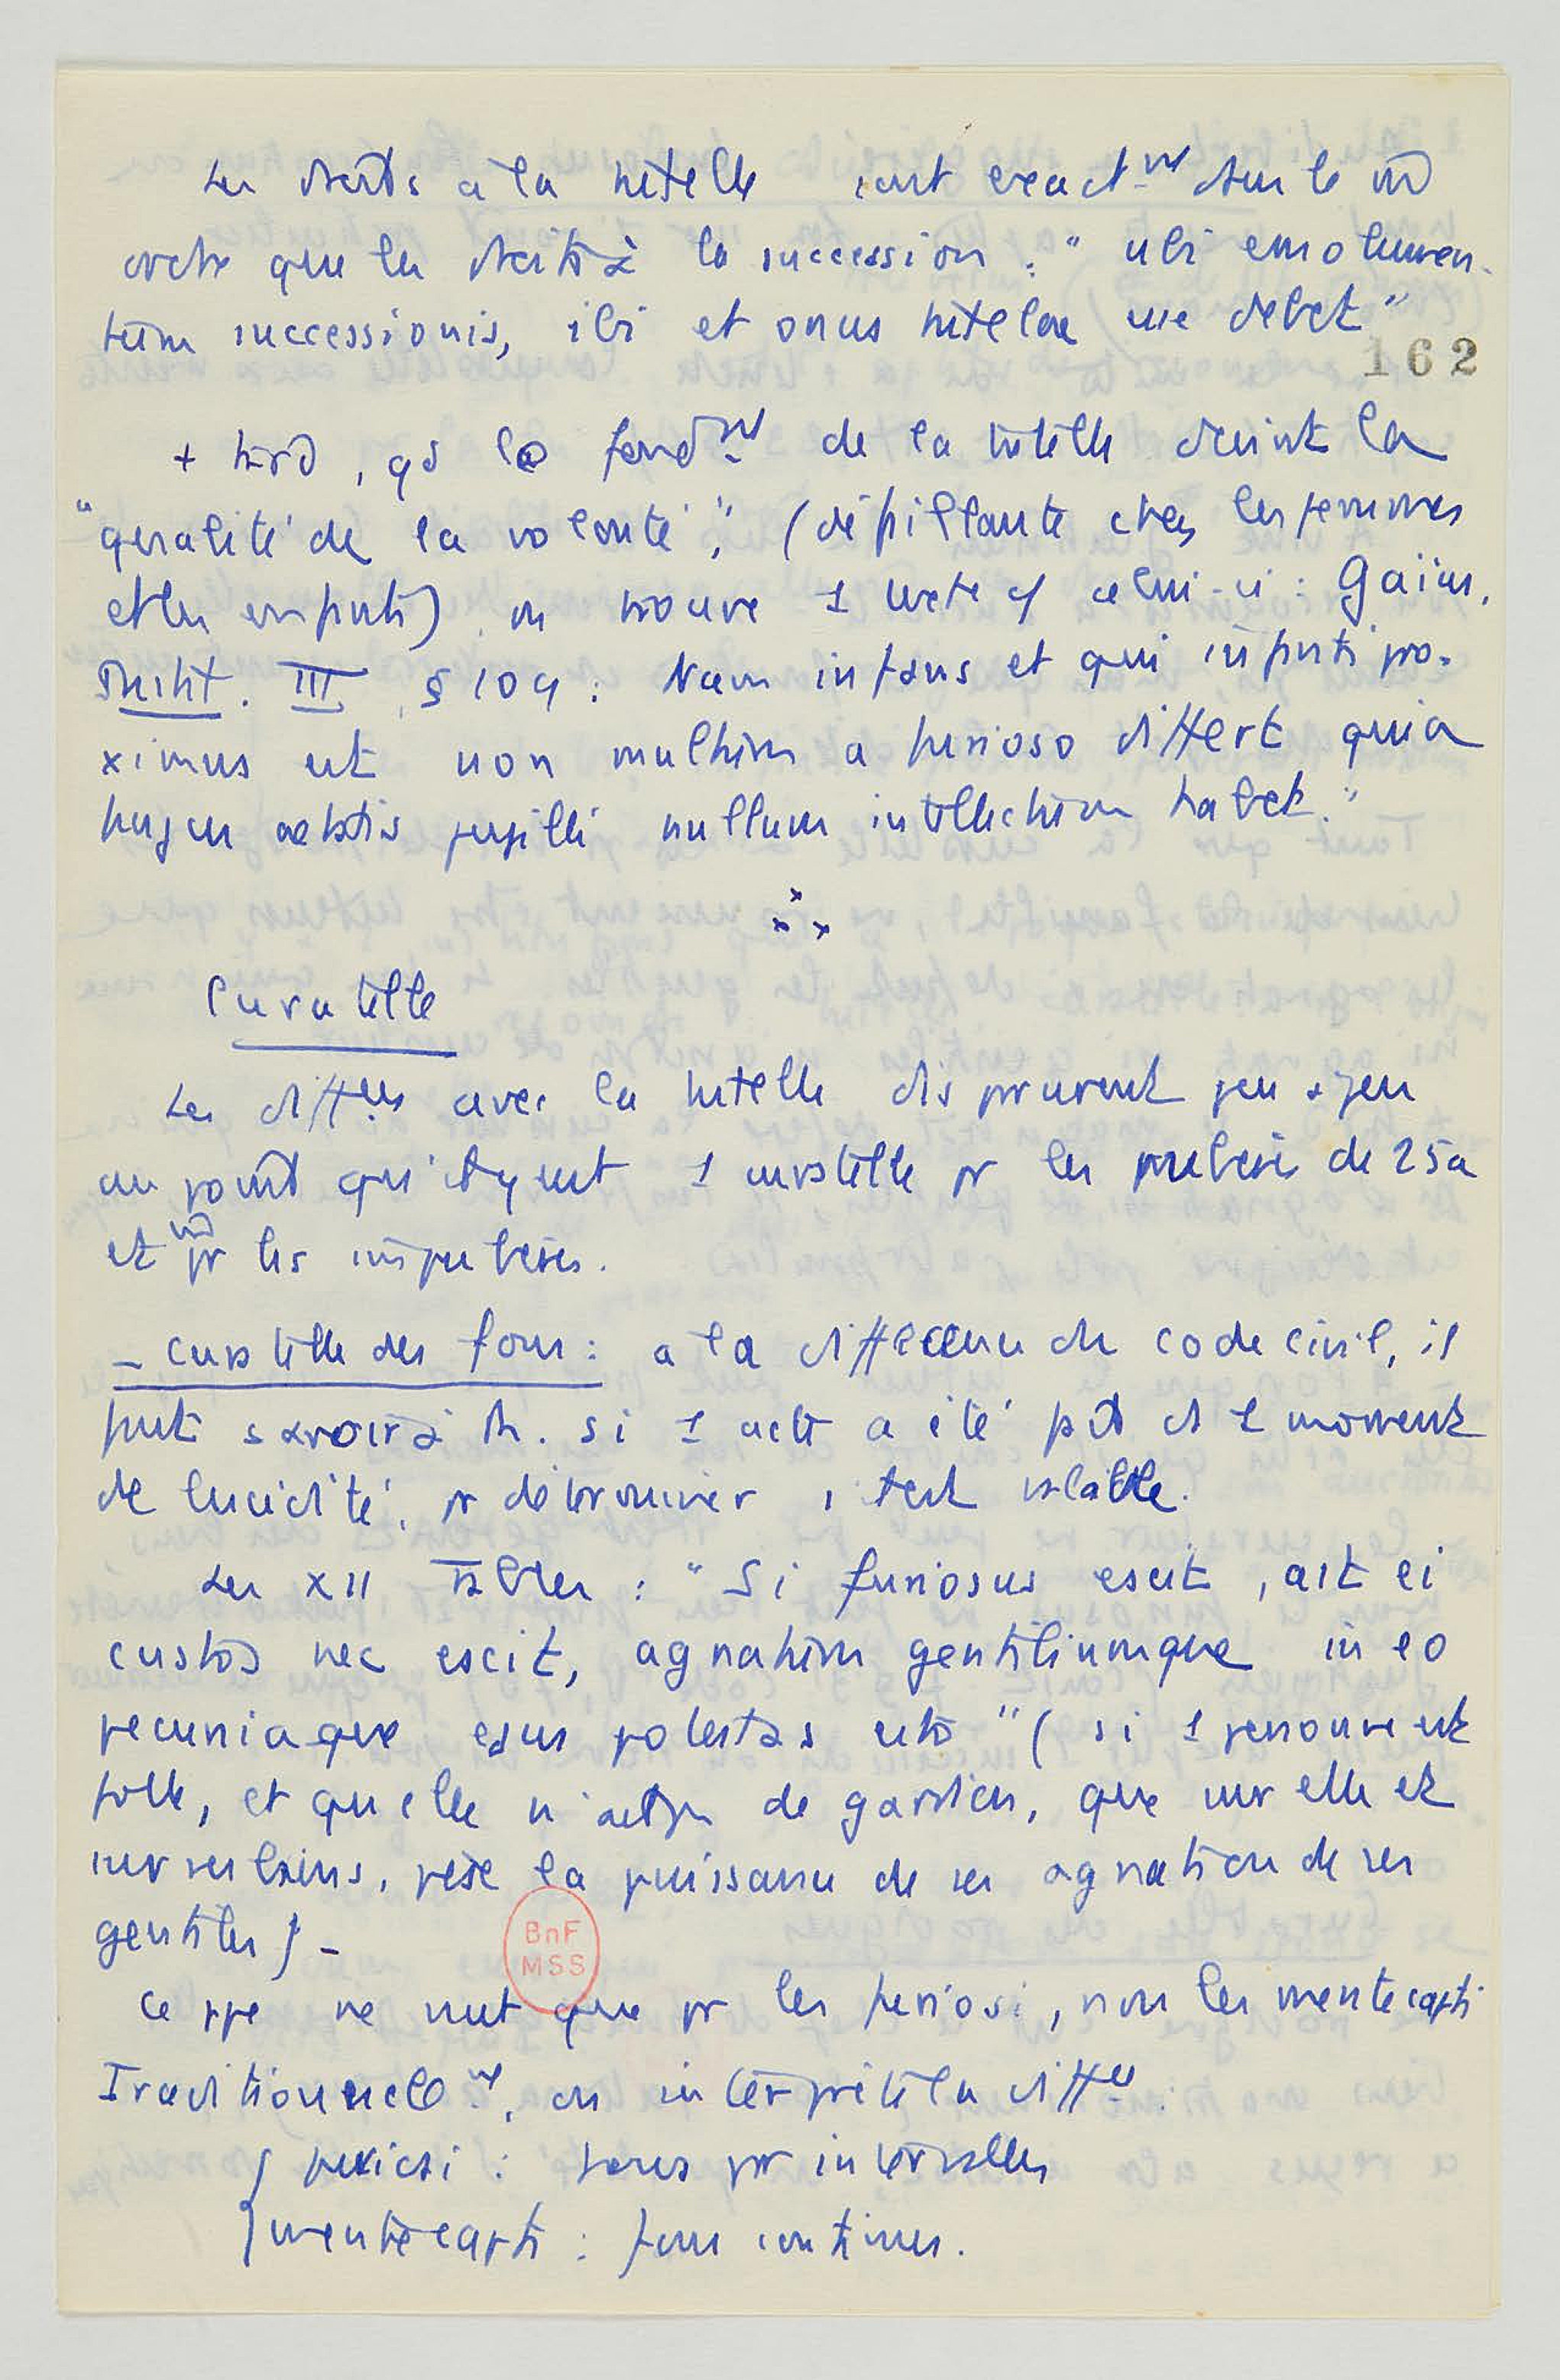 Les droits à la tutelle sont exactmt dans le m̄
ordre que les droits à la succession : " ubi emolumen-
tum successionis, ibi et onus tutelae esse debet "
162
+ tard, qd le fondmt de la tutelle devint la
" qualité de la volonté ", (défaillante chez les femmes
et les enfants) on trouve 1 texte cō celui-ci : Gaïus,
Instit. III, § 109 : Nam infans et qui infanti pro-
ximus est non multum a furioso differt quia
hujus aetatis pupilli nullum intellectum habet. "
Curatelle
Les diffces avec la tutelle disparurent peu à peu
au point qu'il y eut 1 curatelle pr les pubères de 25a
et m̄ pr les impubères.
- Curatelle des fous : à la différence du code civil, il
faut savoir à R. si 1 acte a été fait ds 1 moment
de lucidité, pr déterminer s'il est valable.
Les XII Tables : " Si furiosus escit, ast ei
custos nec escit, agnatum gentiliumque in eo
pecuniaque ejus potestas esto " ( si 1 personne est
folle, et qu'elle n'ait pas de gardien, que sur elle et
sur ses biens, pèse la puissance de ses agnats ou de ses
gentiles ) -
BnF
MSS
Ce ppe ne vaut que pr les furiosi, non les mente capti
Traditionnellmt, on interprète la diffce :
{ furiosi : fous par intervalles
{ mente capti : fous continus.